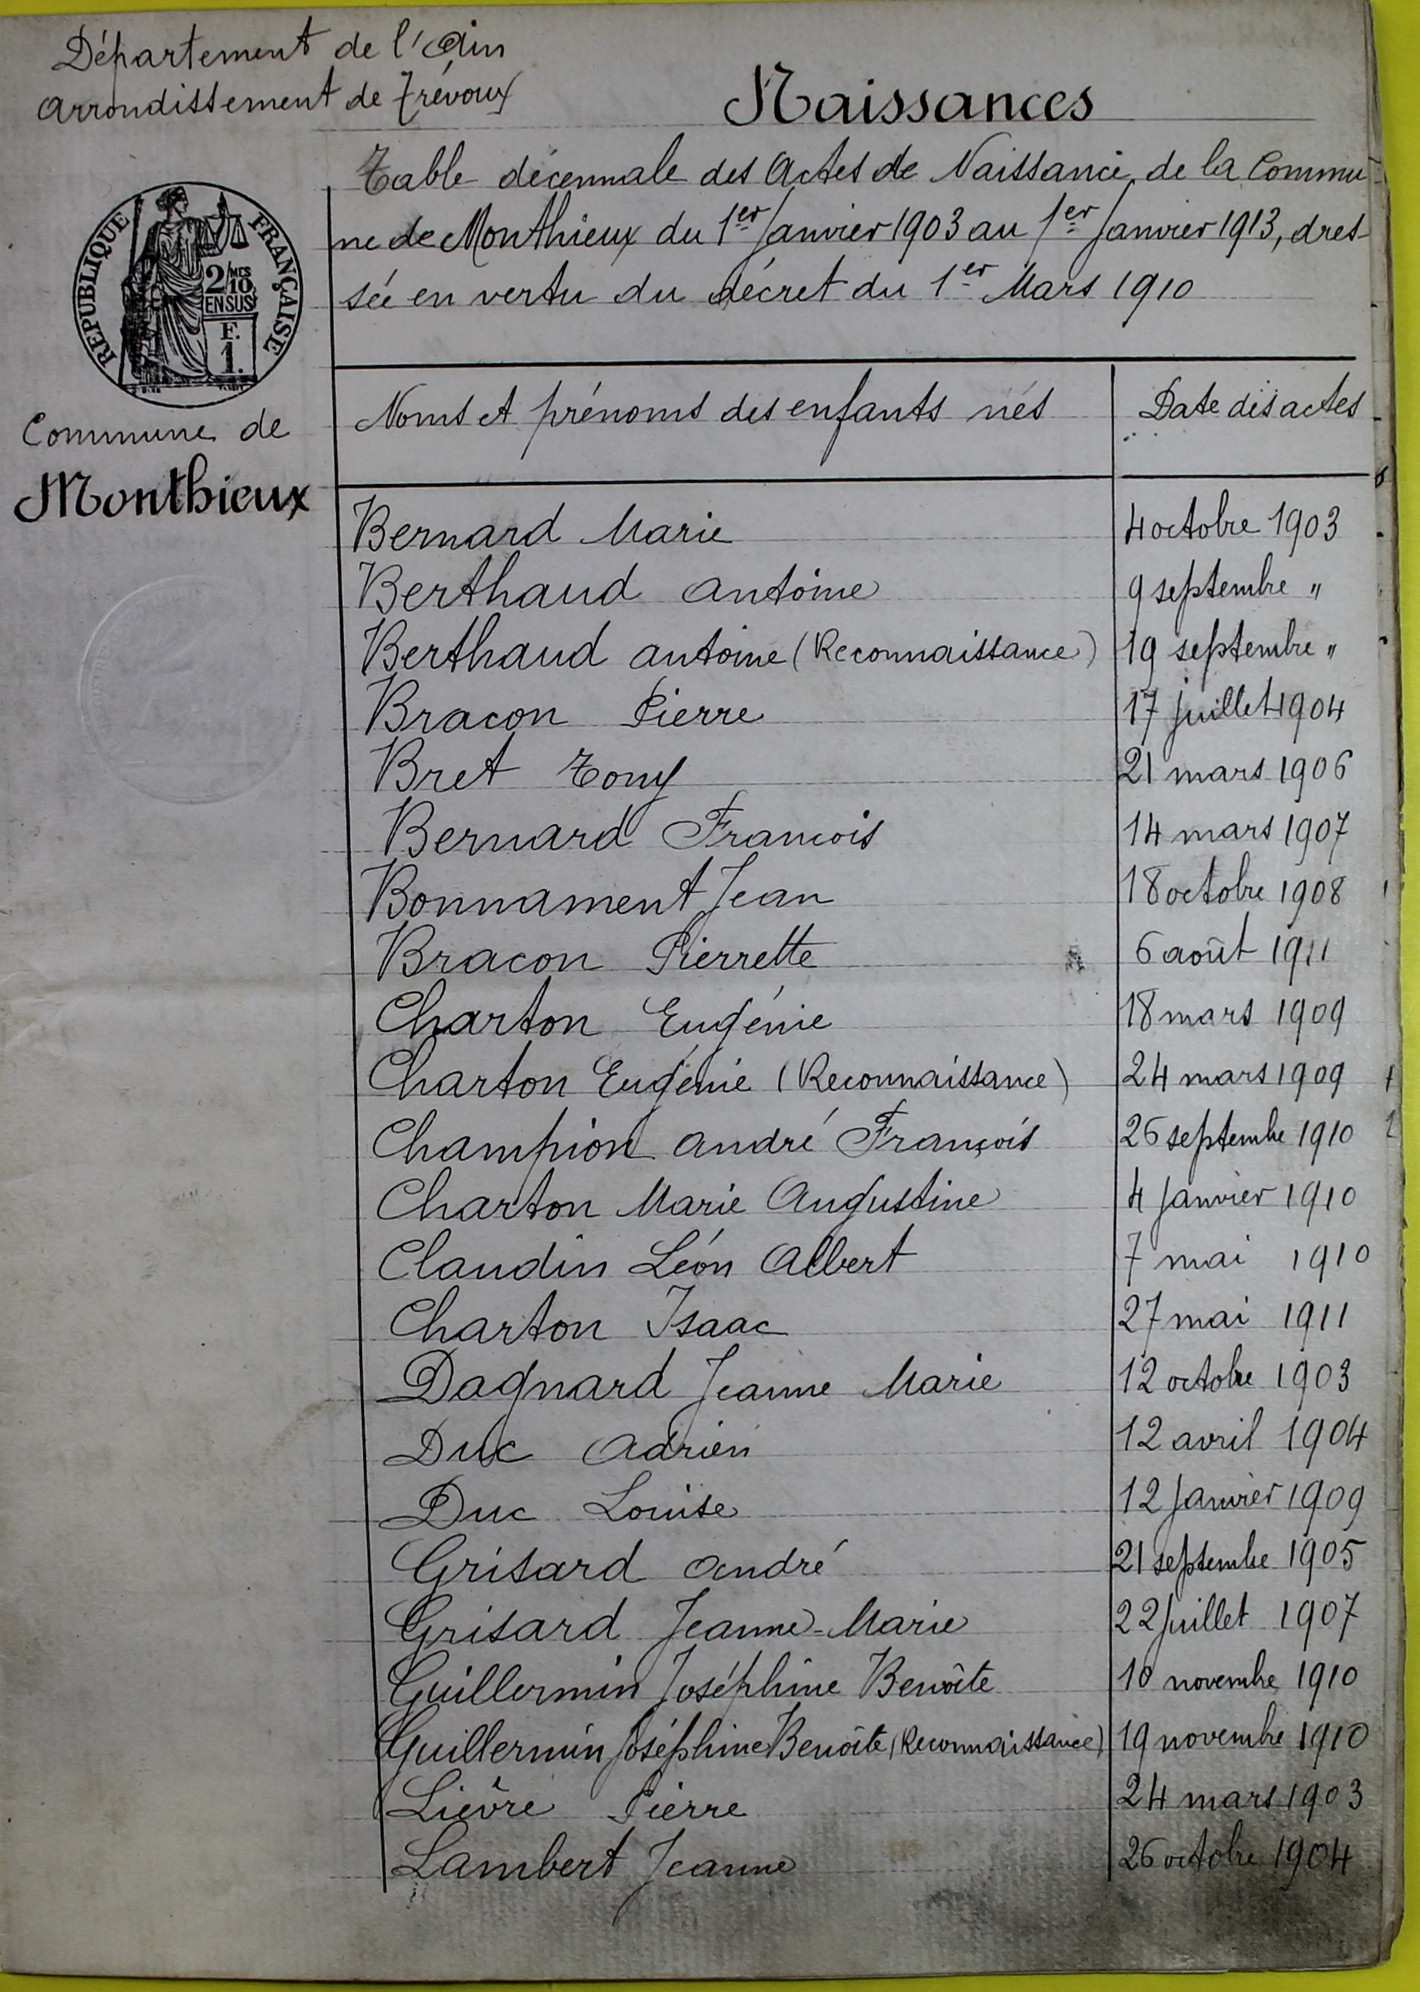 Département de l'Ain
Arrondissement de Trévoux
Naissances
Table décennale des Actes de Naissance de la Commu-
ne de Monthieux du 1er Janvier 1903 au 1er Janvier 1913, dres-
sée en vertu du décret du 1er Mars 1910
RÉPUBLIQUE FRANÇAISE
2/10 MES
EN SUS
F.
1.
Commune de
Monthieux
Noms et prénoms des enfants nés Date des actes
Bernard Marie 4 octobre 1903
Berthaud Antoine 9 septembre "
Berthaud Antoine (Reconnaissance) 19 septembre "
Bracon Pierre 17 juillet 1904
Bret Tony 21 mars 1906
Bernard François 14 mars 1907
Bonnament Jean 18 octobre 1908
Bracon Pierrette 6 août 1911
Charton Eugénie 18 mars 1909
Charton Eugénie (Reconnaissance) 24 mars 1909
Champion André François 26 septembre 1910
Charton Marie Augustine 4 Janvier 1910
Claudin Léon Albert 7 mai 1910
Charton Isaac 27 mai 1911
Dagnard Jeanne Marie 12 octobre 1903
Duc Adrien 12 avril 1904
Duc Louise 12 Janvier 1909
Grisard André 21 septembre 1905
Grisard Jeanne-Marie 22 Juillet 1907
Guillermin Joséphine Benoîte 10 novembre 1910
Guillermin Joséphine Benoîte (Reconnaissance) 19 novembre 1910
Lièvre Pierre 24 mars 1903
Lambert Jeanne 26 octobre 1904